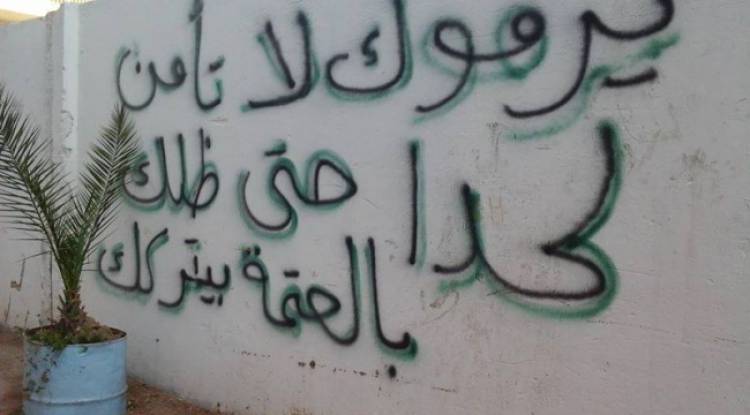 يرموك لا تأمن
لحدا حتى ظلك
بالعتمة بيتركك